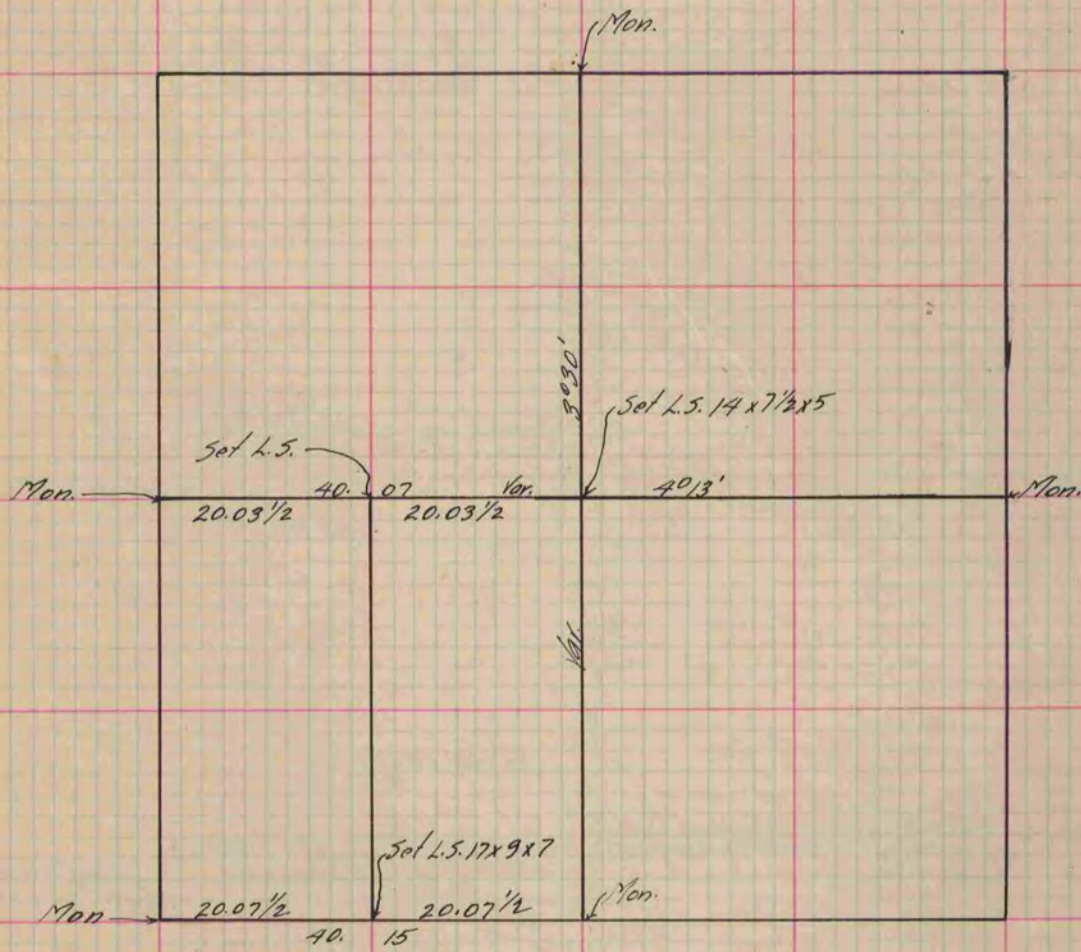 Mon.
3°30'
Set L.S. 14 x 7 1/2 x 5
Set L.S.
Mon.
40. 07
Var.
4°13'
Mon.
20.03 1/2
20.03 1/2
Var.
Set L.S. 17 x 9 x 7
Mon
20.07 1/2
20.07 1/2
Mon.
40. 15